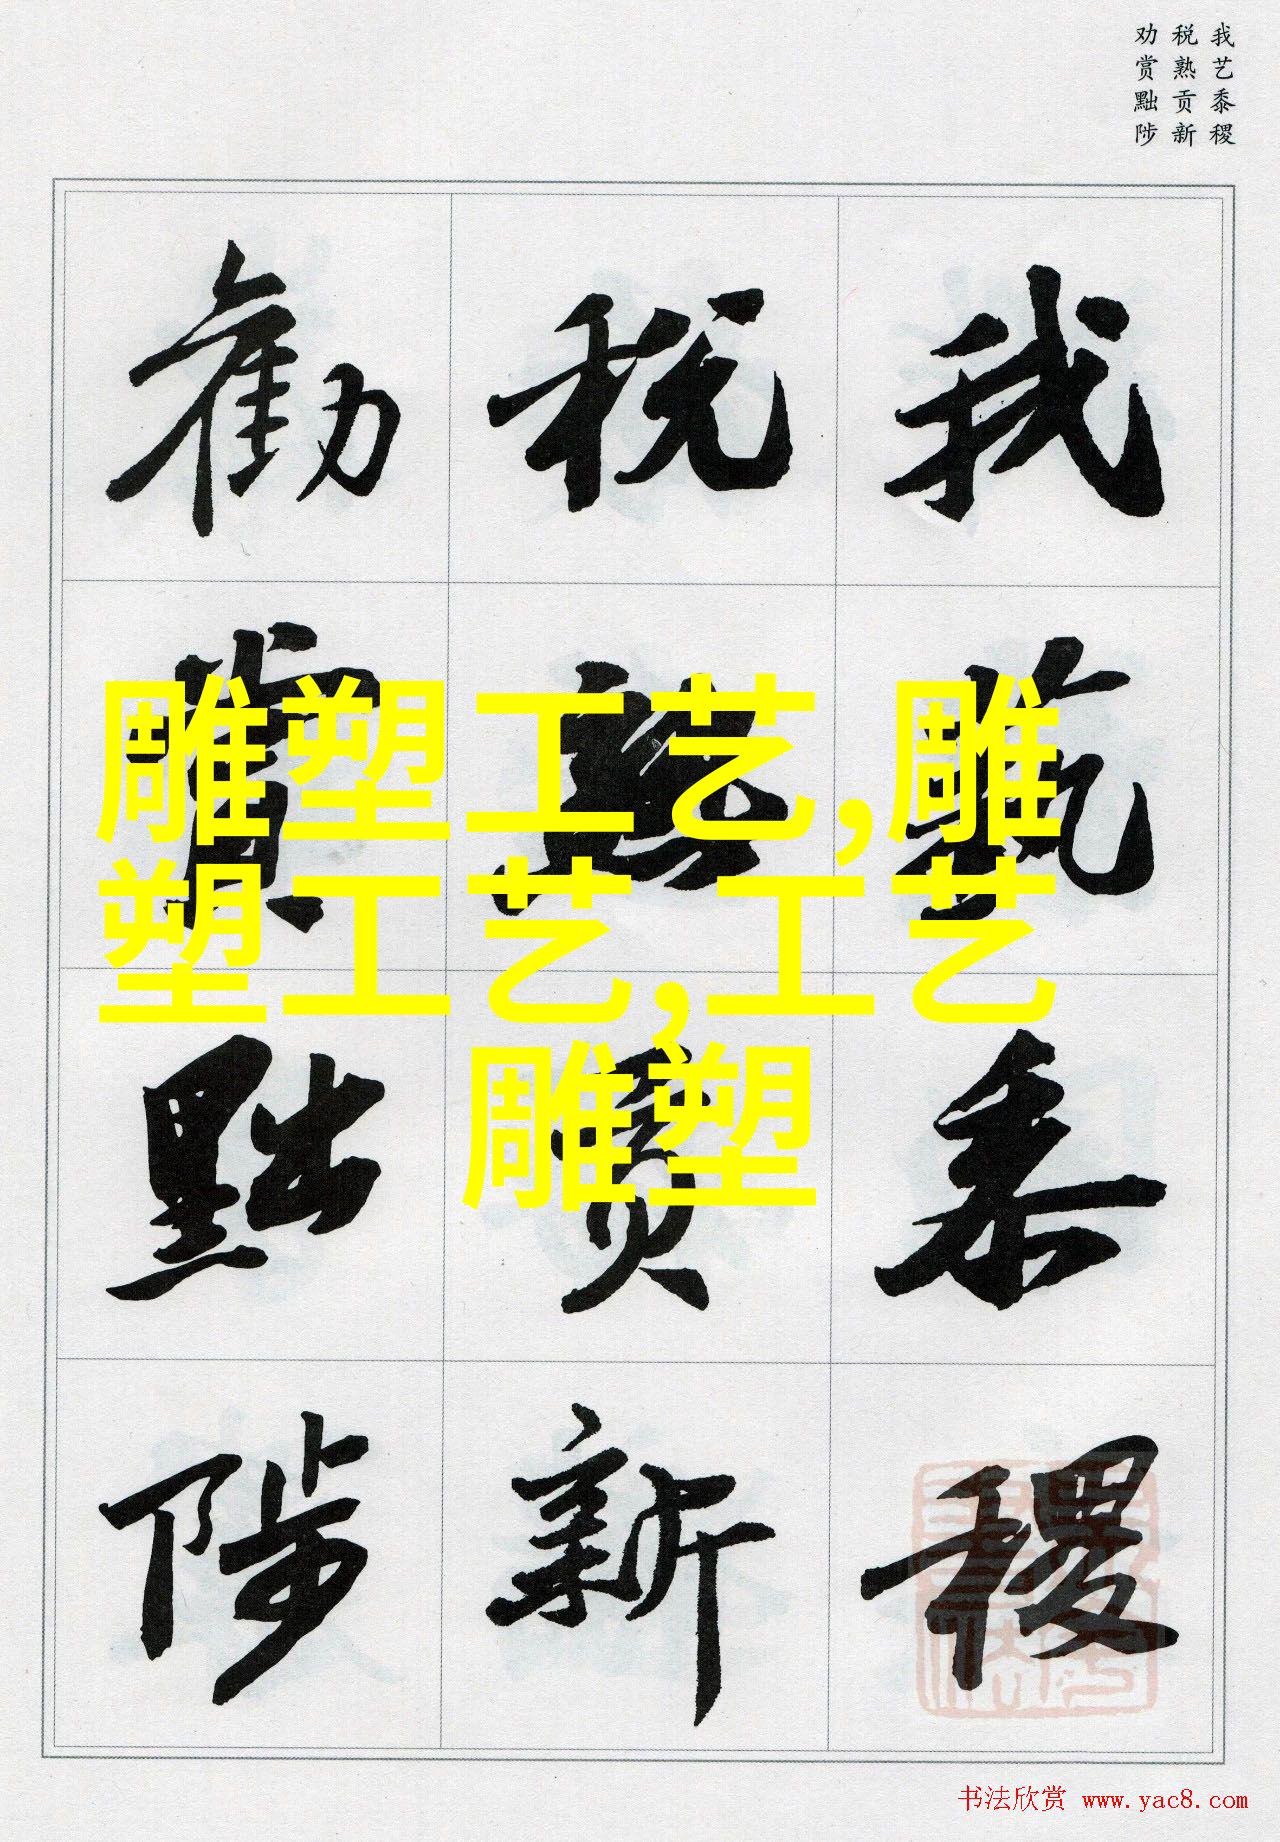 我艺黍稷
税熟贡新
劝赏黜陟
我藝黍稷
税熟贡新
勸賞黜陟
雕塑工艺,雕
塑工艺,工艺
雕塑
书法欣赏 www.yac8.com